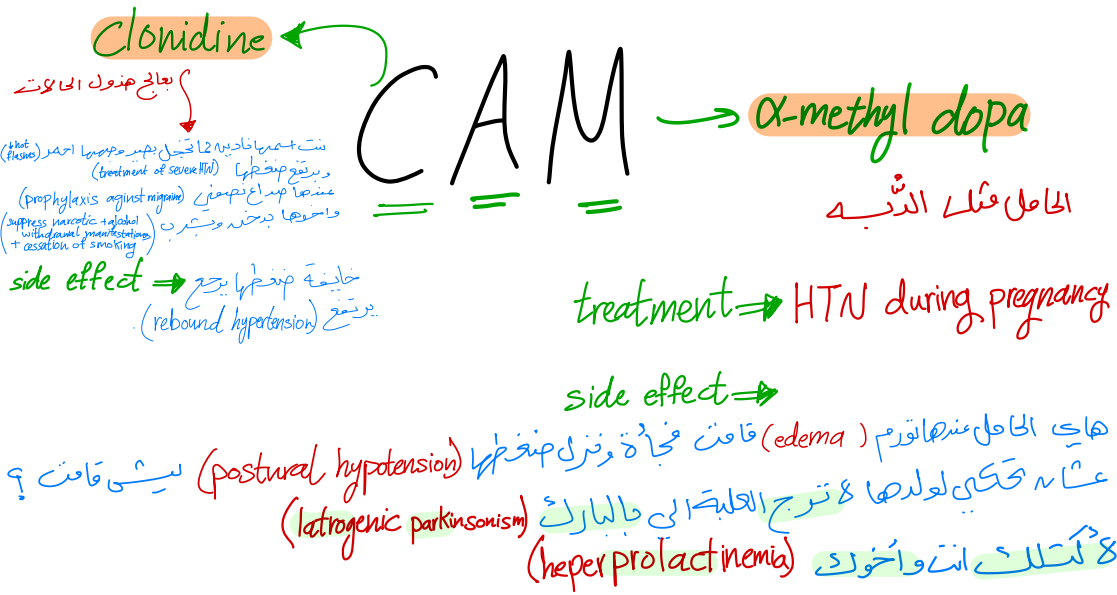 Clonidine
CAM
α-methyl dopa
بعالج هدول الحالات
بنت اسمها نادين لما تخجل بصير وجهها احمر (hot flashes)
وبرتفع ضغطها (treatment of severe HTN)
عندها صداع نصفي (prophylaxis aginst migraine)
واخوها بدخن وبشرب (suppress narcotic + alcohol withdrawal manifestations + cessation of smoking)
side effect ⇒ خايفة ضغطها يرجع
يرتفع (rebound hypertension).
الحامل مثل الدُّبه
treatment ⇒ HTN during pregnancy
side effect ⇒
هاي الحامل عندها تورم (edema) قامت فجأة ونزل ضغطها (postural hypotension) ليش قامت ؟
عشان تحكي لولدها لا ترج العلبة الي بالبارك (Iatrogenic parkinsonism)
لأكتلك انت وأخوك (heperprolactinemia)